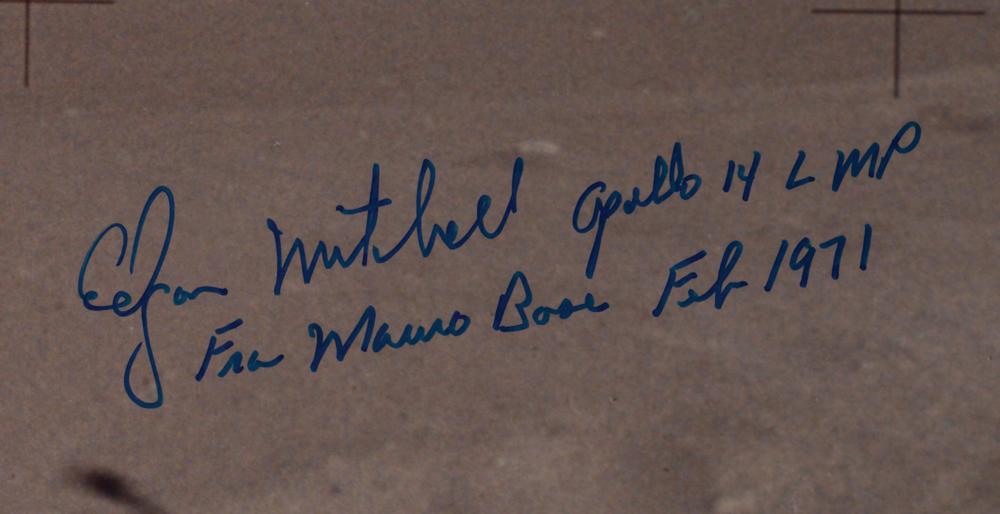 Edgar Mitchell Apollo 14 LMP
Fra Mauro Base Feb 1971